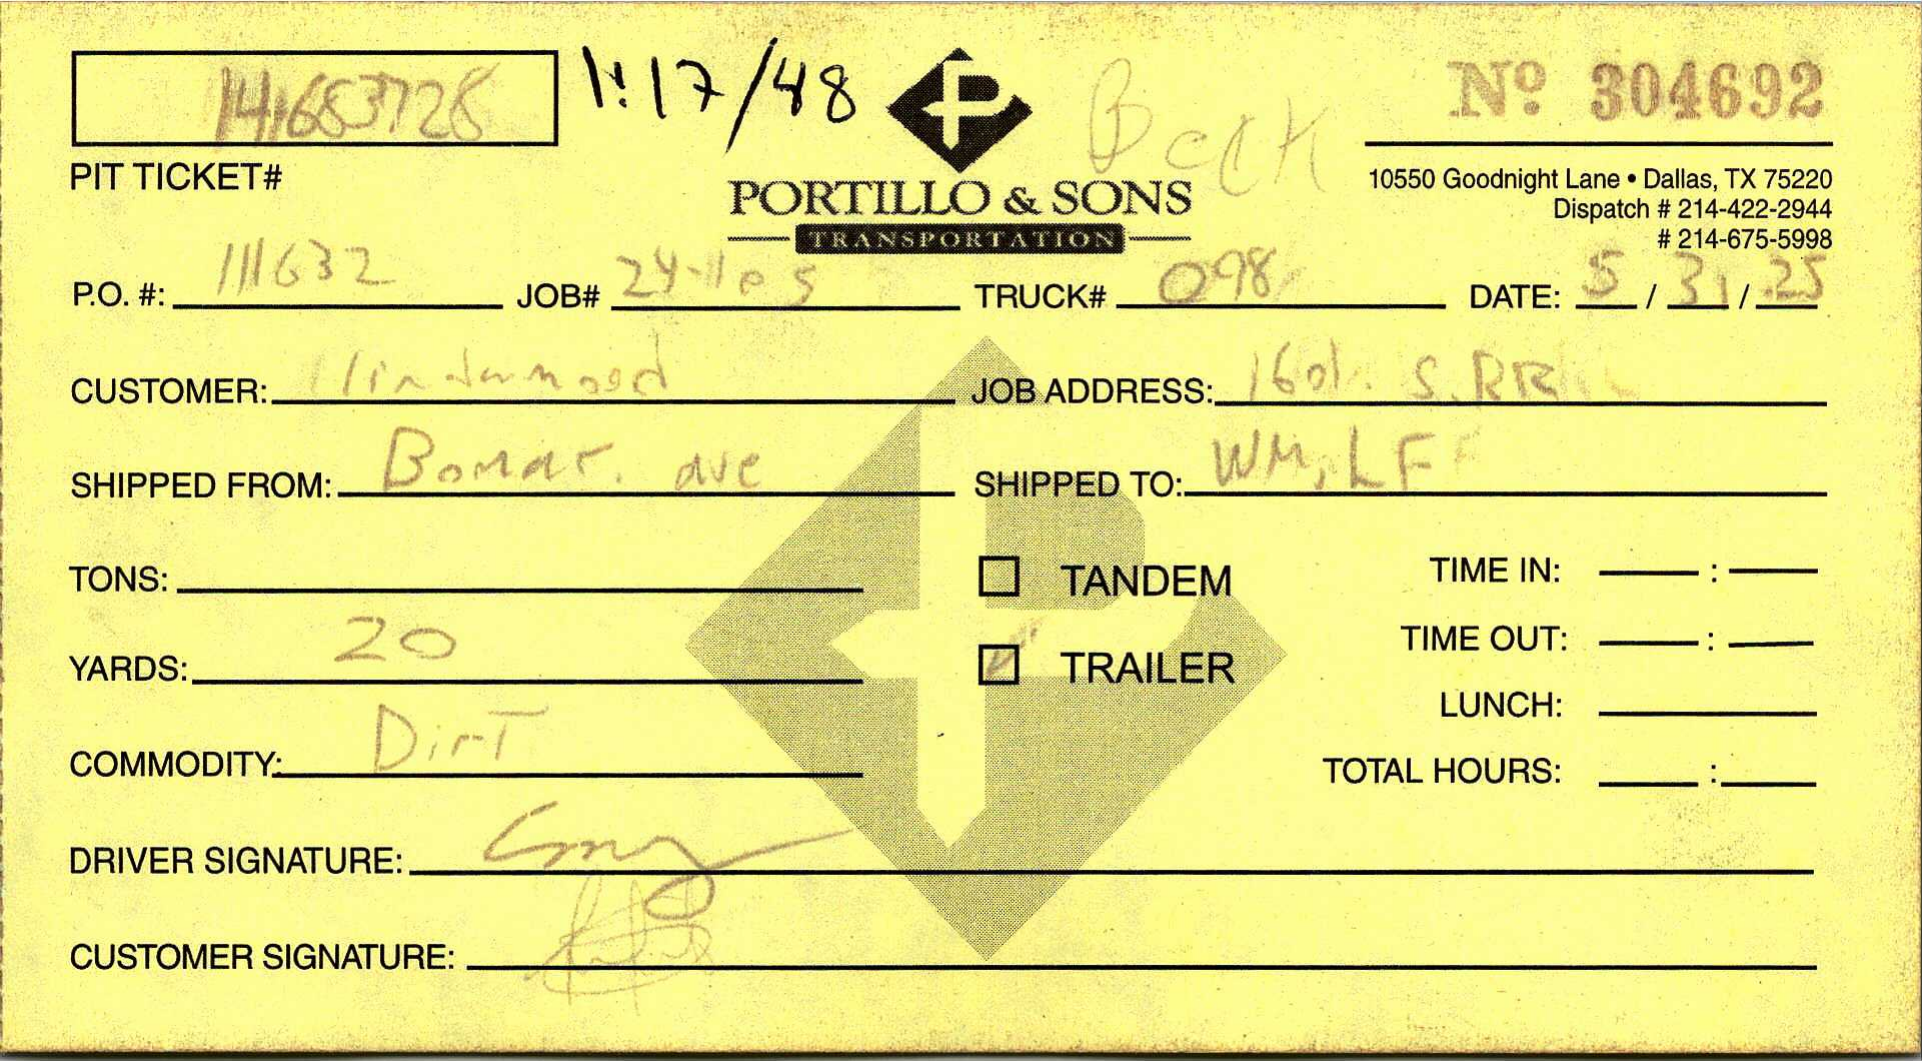 1:17/48
Nº 304692
PIT TICKET#
PORTILLO & SONS
TRANSPORTATION
10550 Goodnight Lane • Dallas, TX 75220
Dispatch # 214-422-2944
# 214-675-5998
P.O. #: 111632 JOB# TRUCK# 098 DATE: 5 / 31 / 25
CUSTOMER: JOB ADDRESS: 1601 S. RR
SHIPPED FROM: Bomar. ave SHIPPED TO: WM, LF
TONS:
TANDEM
TIME IN: :
YARDS: 20
TRAILER
TIME OUT: :
LUNCH:
COMMODITY: Dirt
TOTAL HOURS: :
DRIVER SIGNATURE:
CUSTOMER SIGNATURE: